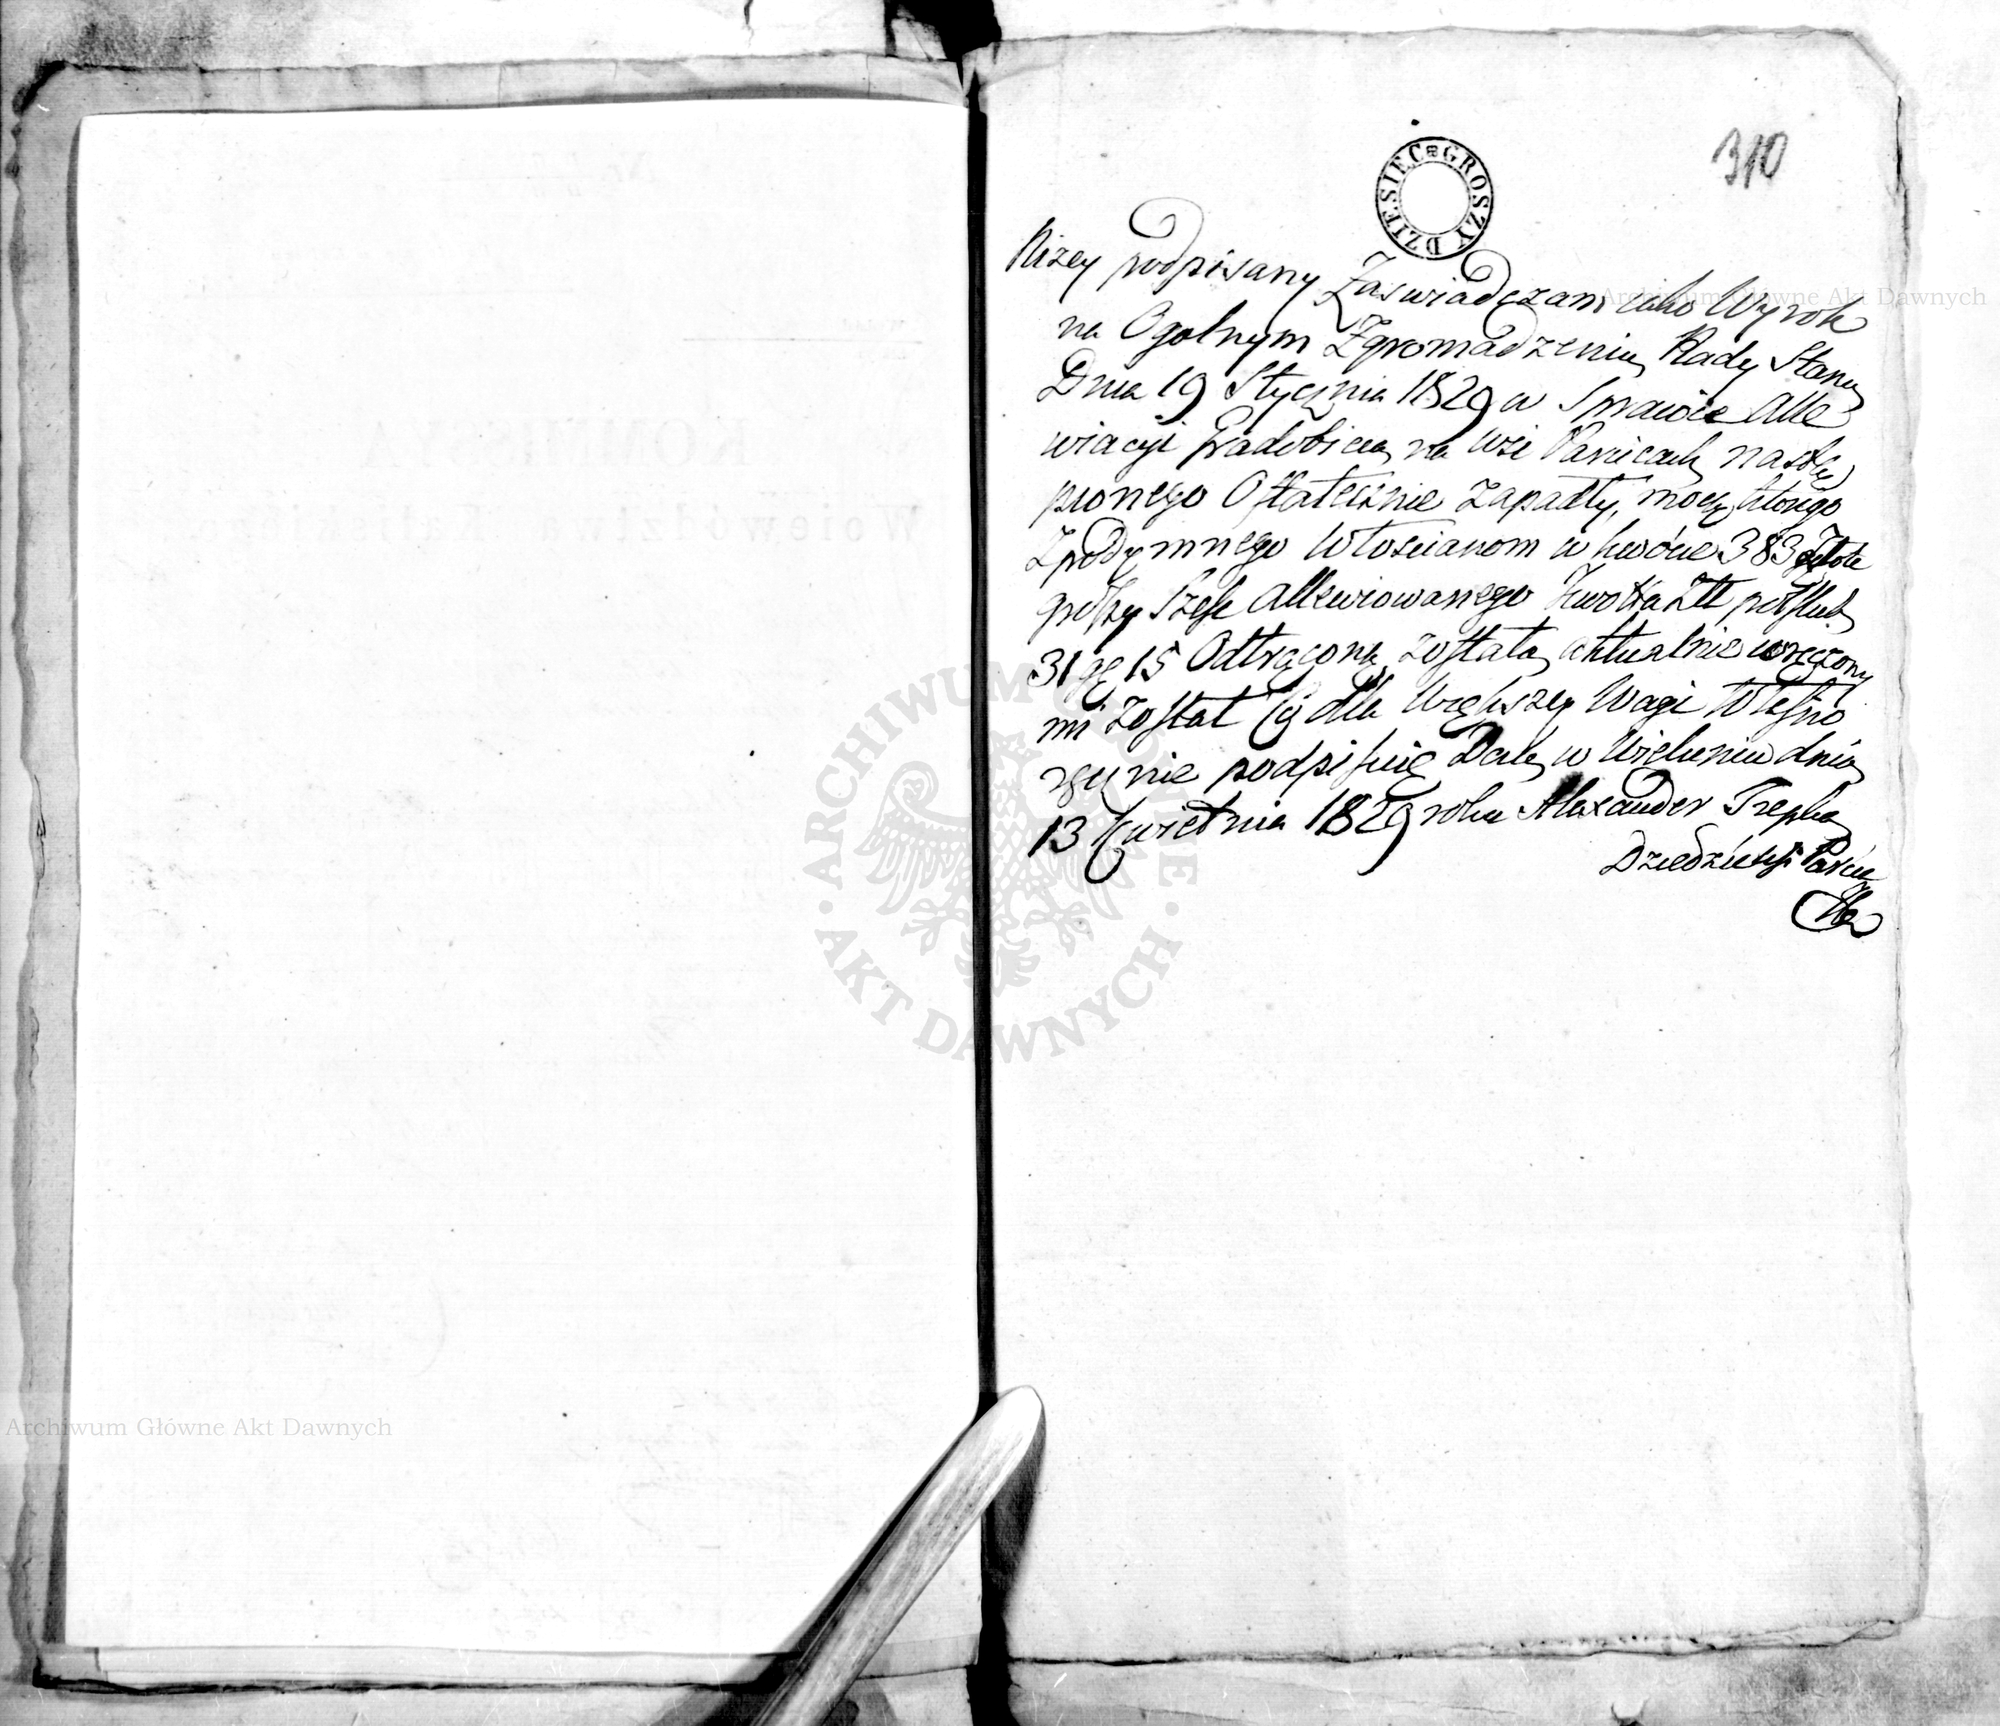 310
DZIESIĘC GROSZY
Nizey podpisany Zaswiadczam iako Wyrok
na Ogolnym Zgromadzeniu Rady Stanu
Dnia 19 Stycznia 1829 w Sprawie Alle
wiacyi Gradobicia na wsi Parcicach nastę
pionego Ostatecznie zapadły, mocą ktorego
Zpodymnego Włoscianom w kwocie 383 złote
groszy Szesc Allewiowanego Kwotta Złł pol
31 gr 15 Odtrącona została aktualnie wręczony
mi został cɉ dla większey Wagi Własno
ręcznie podpisuię Dałt w Wieluniu dnia
13 Kwietnia 1829 roku Alexander Trepka
Dziedzic wsi Parcic
ARCHIWUM GŁÓWNE AKT DAWNYCH
Archiwum Główne Akt Dawnych
Archiwum Główne Akt Dawnych
KOMMISSYA
Woiewództwa Kaliskiego